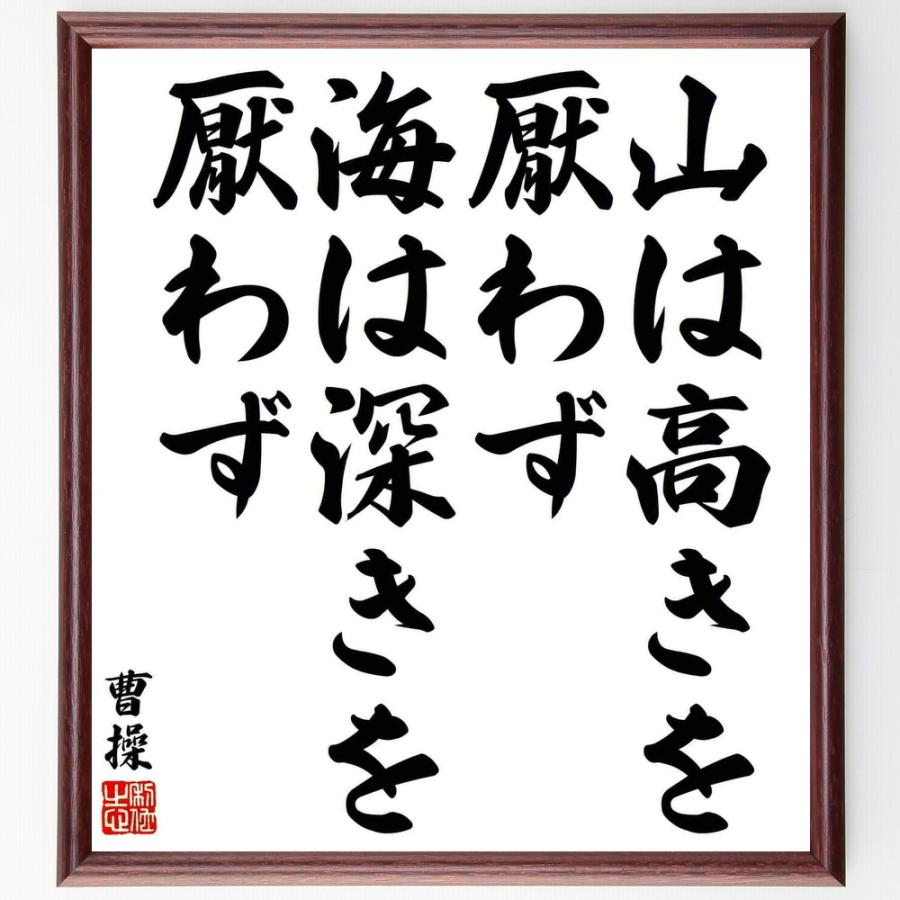 山は高きを
厭わず
海は深きを
厭わず
曹操